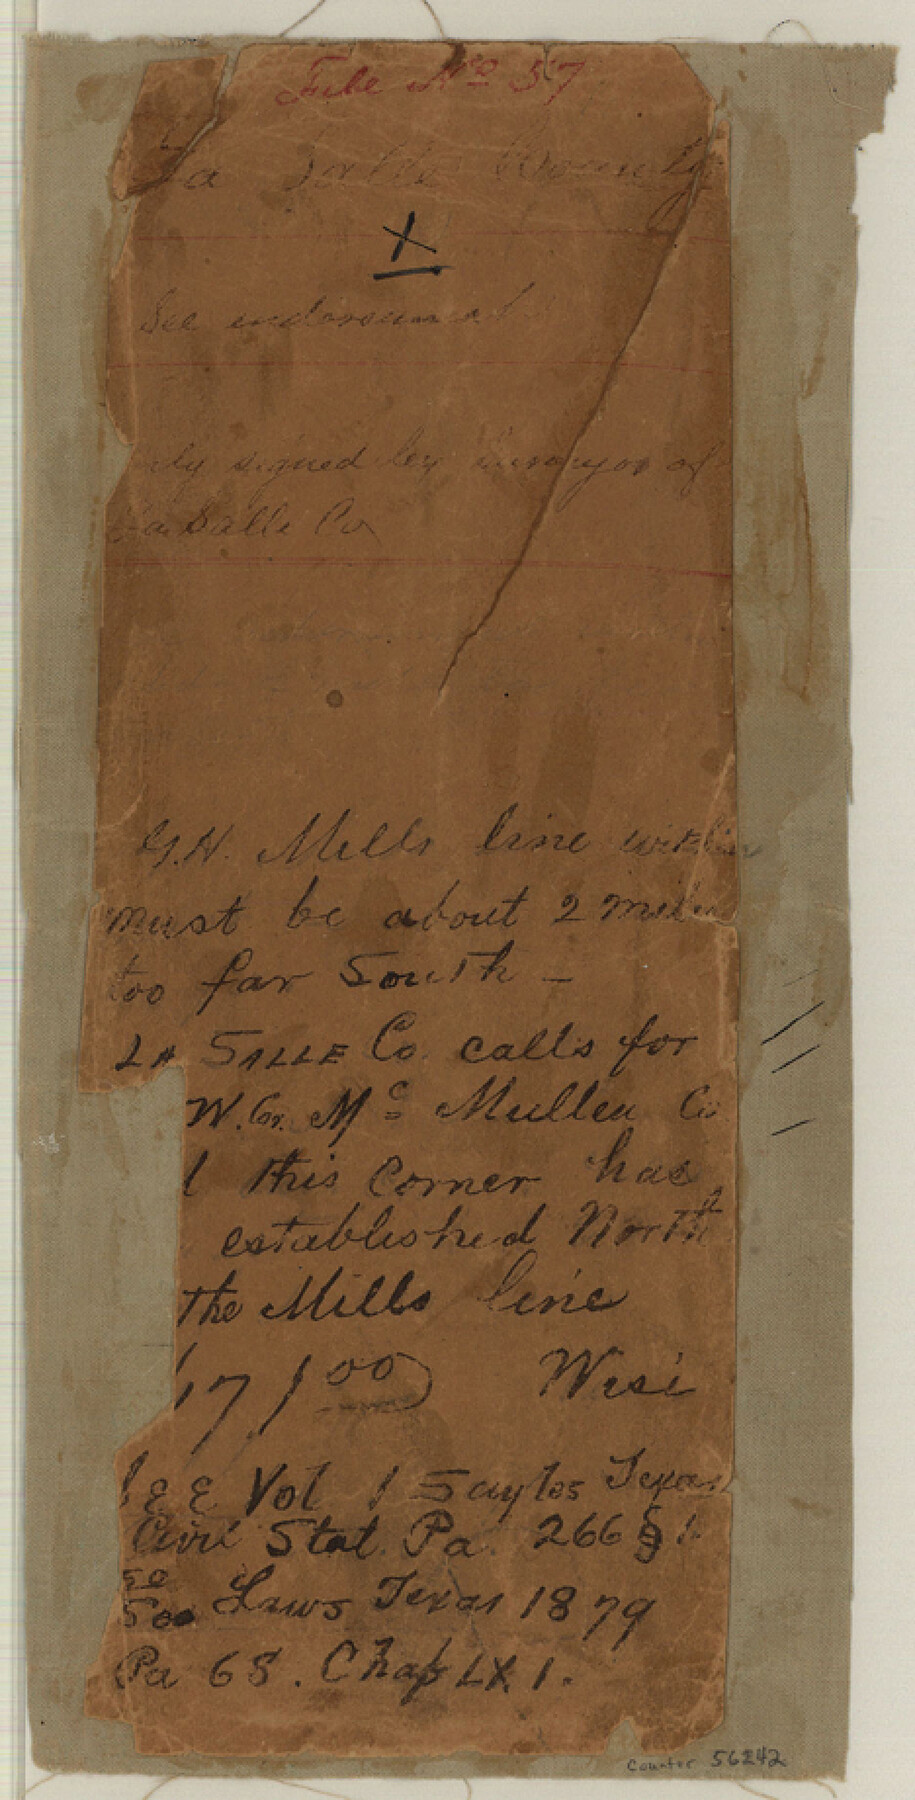 File No 57
La Salle County
X
See endorsement
signed by Surveyor of
La Salle Co
G.H. Mills line
must be about 2 miles
too far South —
LA SALLE Co. calls for
W. Cr. Mc Mullen Co
this Corner has
established North
the Mills line
171 00 West
See Vol 1 Sayles Texas
Civil Stat. Pa. 266 § 1.
See Laws Texas 1879
Pa 68. Chap LX 1.
counter 56242